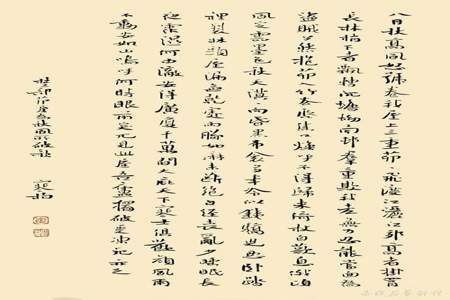 八月秋高風怒號卷我屋上三重茅茅飛渡江灑江郊高者掛罥
長林梢下者飄轉沉塘坳南村群童欺我老無力忍能對面為
盜賊公然抱茅入竹去唇焦口燥呼不得歸來倚杖自歎息俄頃
風定雲墨色秋天漠漠向昏黑布衾多年冷似鐵嬌兒惡臥踏
裡裂床頭屋漏無乾處雨腳如麻未斷絕自經喪亂少睡眠長
夜霑濕何由徹安得廣廈千萬間大庇天下寒士俱歡顏風雨
不動安如山嗚呼何時眼前突兀見此屋吾廬獨破受凍死亦足
茅屋為秋風所破歌